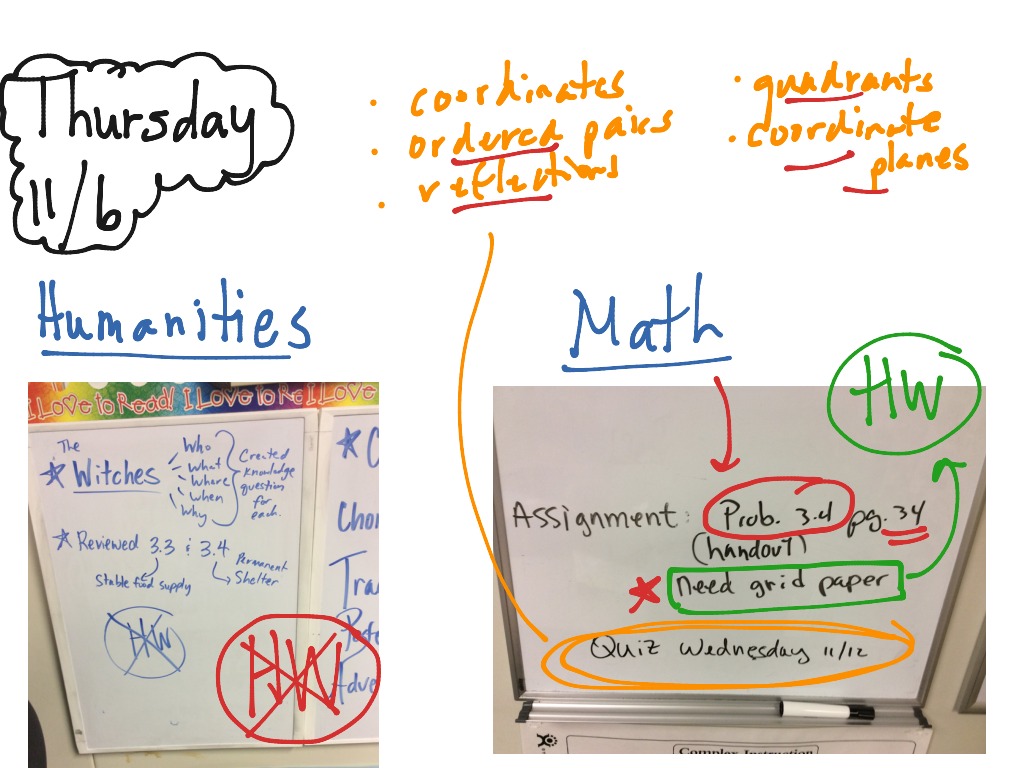 Thursday
11/6
• coordinates
• ordered pairs
• reflections
• quadrants
• coordinate
planes
Humanities
Math
HW
I Love to Read! I Love to Re I Love to Read!
The
Witches
Who
What
Where
When
Why
Created
knowledge
question
for
each.
Reviewed 3.3 & 3.4
Stable food supply
Permanent
Shelter
HW
HW
C
Chor
Tra
Adve
Assignment: Prob. 3.4 pg. 34
(handout)
need grid paper
Quiz Wednesday 11/12
Complex Instruction